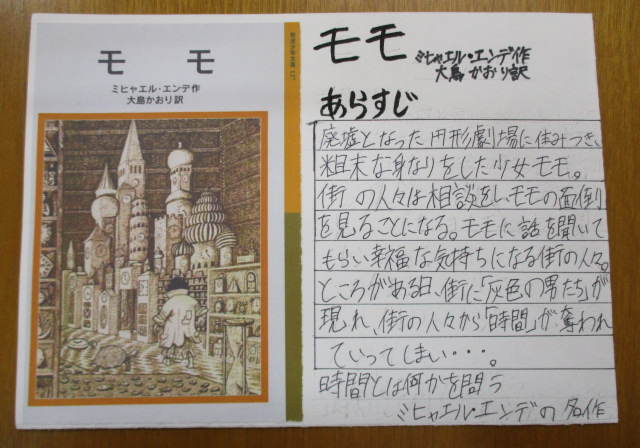 モモ
ミヒャエル・エンデ作
大島かおり訳
岩波少年文庫 127
モモ
ミヒャエル・エンデ作
大島かおり訳
あらすじ
廃墟となった円形劇場に住みつき、
粗末な身なりをした少女モモ。
街の人々は相談をし、モモの面倒
を見ることになる。モモに話を聞いて
もらい幸福な気持ちになる街の人々。
ところがある日、街に「灰色の男たち」が
現れ、街の人々から「時間」が奪われ
ていってしまい・・・。
時間とは何かを問う
ミヒャエル・エンデの名作